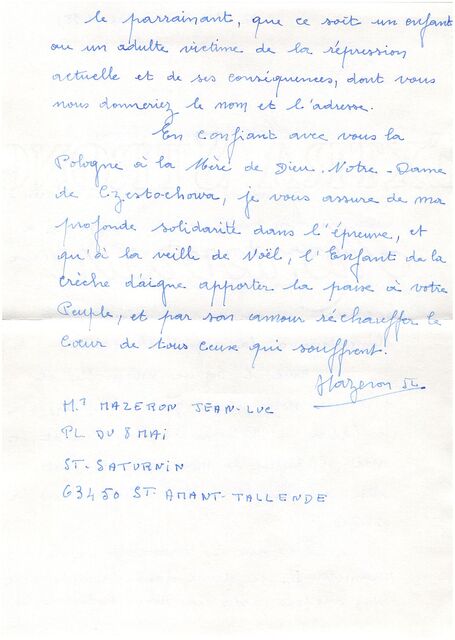 le parrainant, que ce soit un enfant
ou un adulte victime de la répression
actuelle et de ses conséquences, dont vous
nous donneriez le nom et l'adresse.
En confiant avec vous la
Pologne à la Mère de Dieu. Notre-Dame
de Czestochowa, je vous assure de ma
profonde solidarité dans l'épreuve, et
qu'à la veille de Noël, l'Enfant de la
crèche daigne apporter la paix à votre
Peuple, et par son amour réchauffer le
Cœur de tous ceux qui souffrent!
Mazeron JL
M.r MAZERON JEAN-LUC
PL DU 8 MAI
ST-SATURNIN
63450 ST. AMANT-TALLENDE